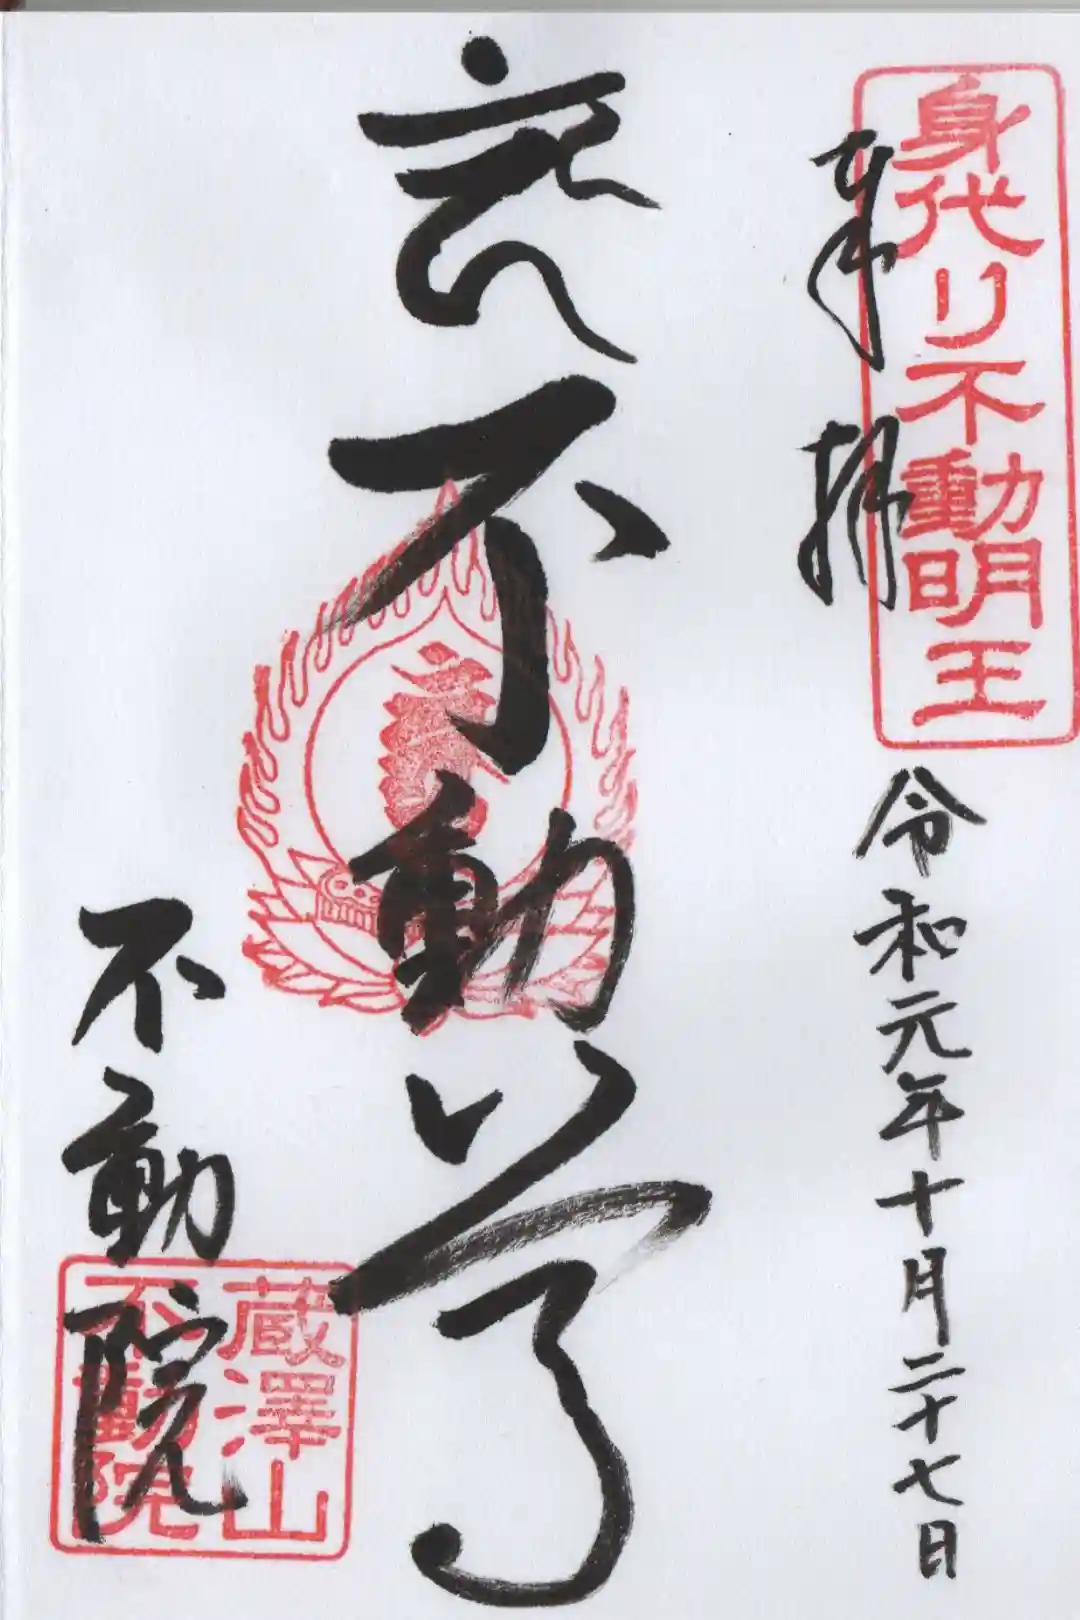 身代り不動明王
奉拝
令和元年十月二十七日
不動尊
不動院
蔵澤山
不動院